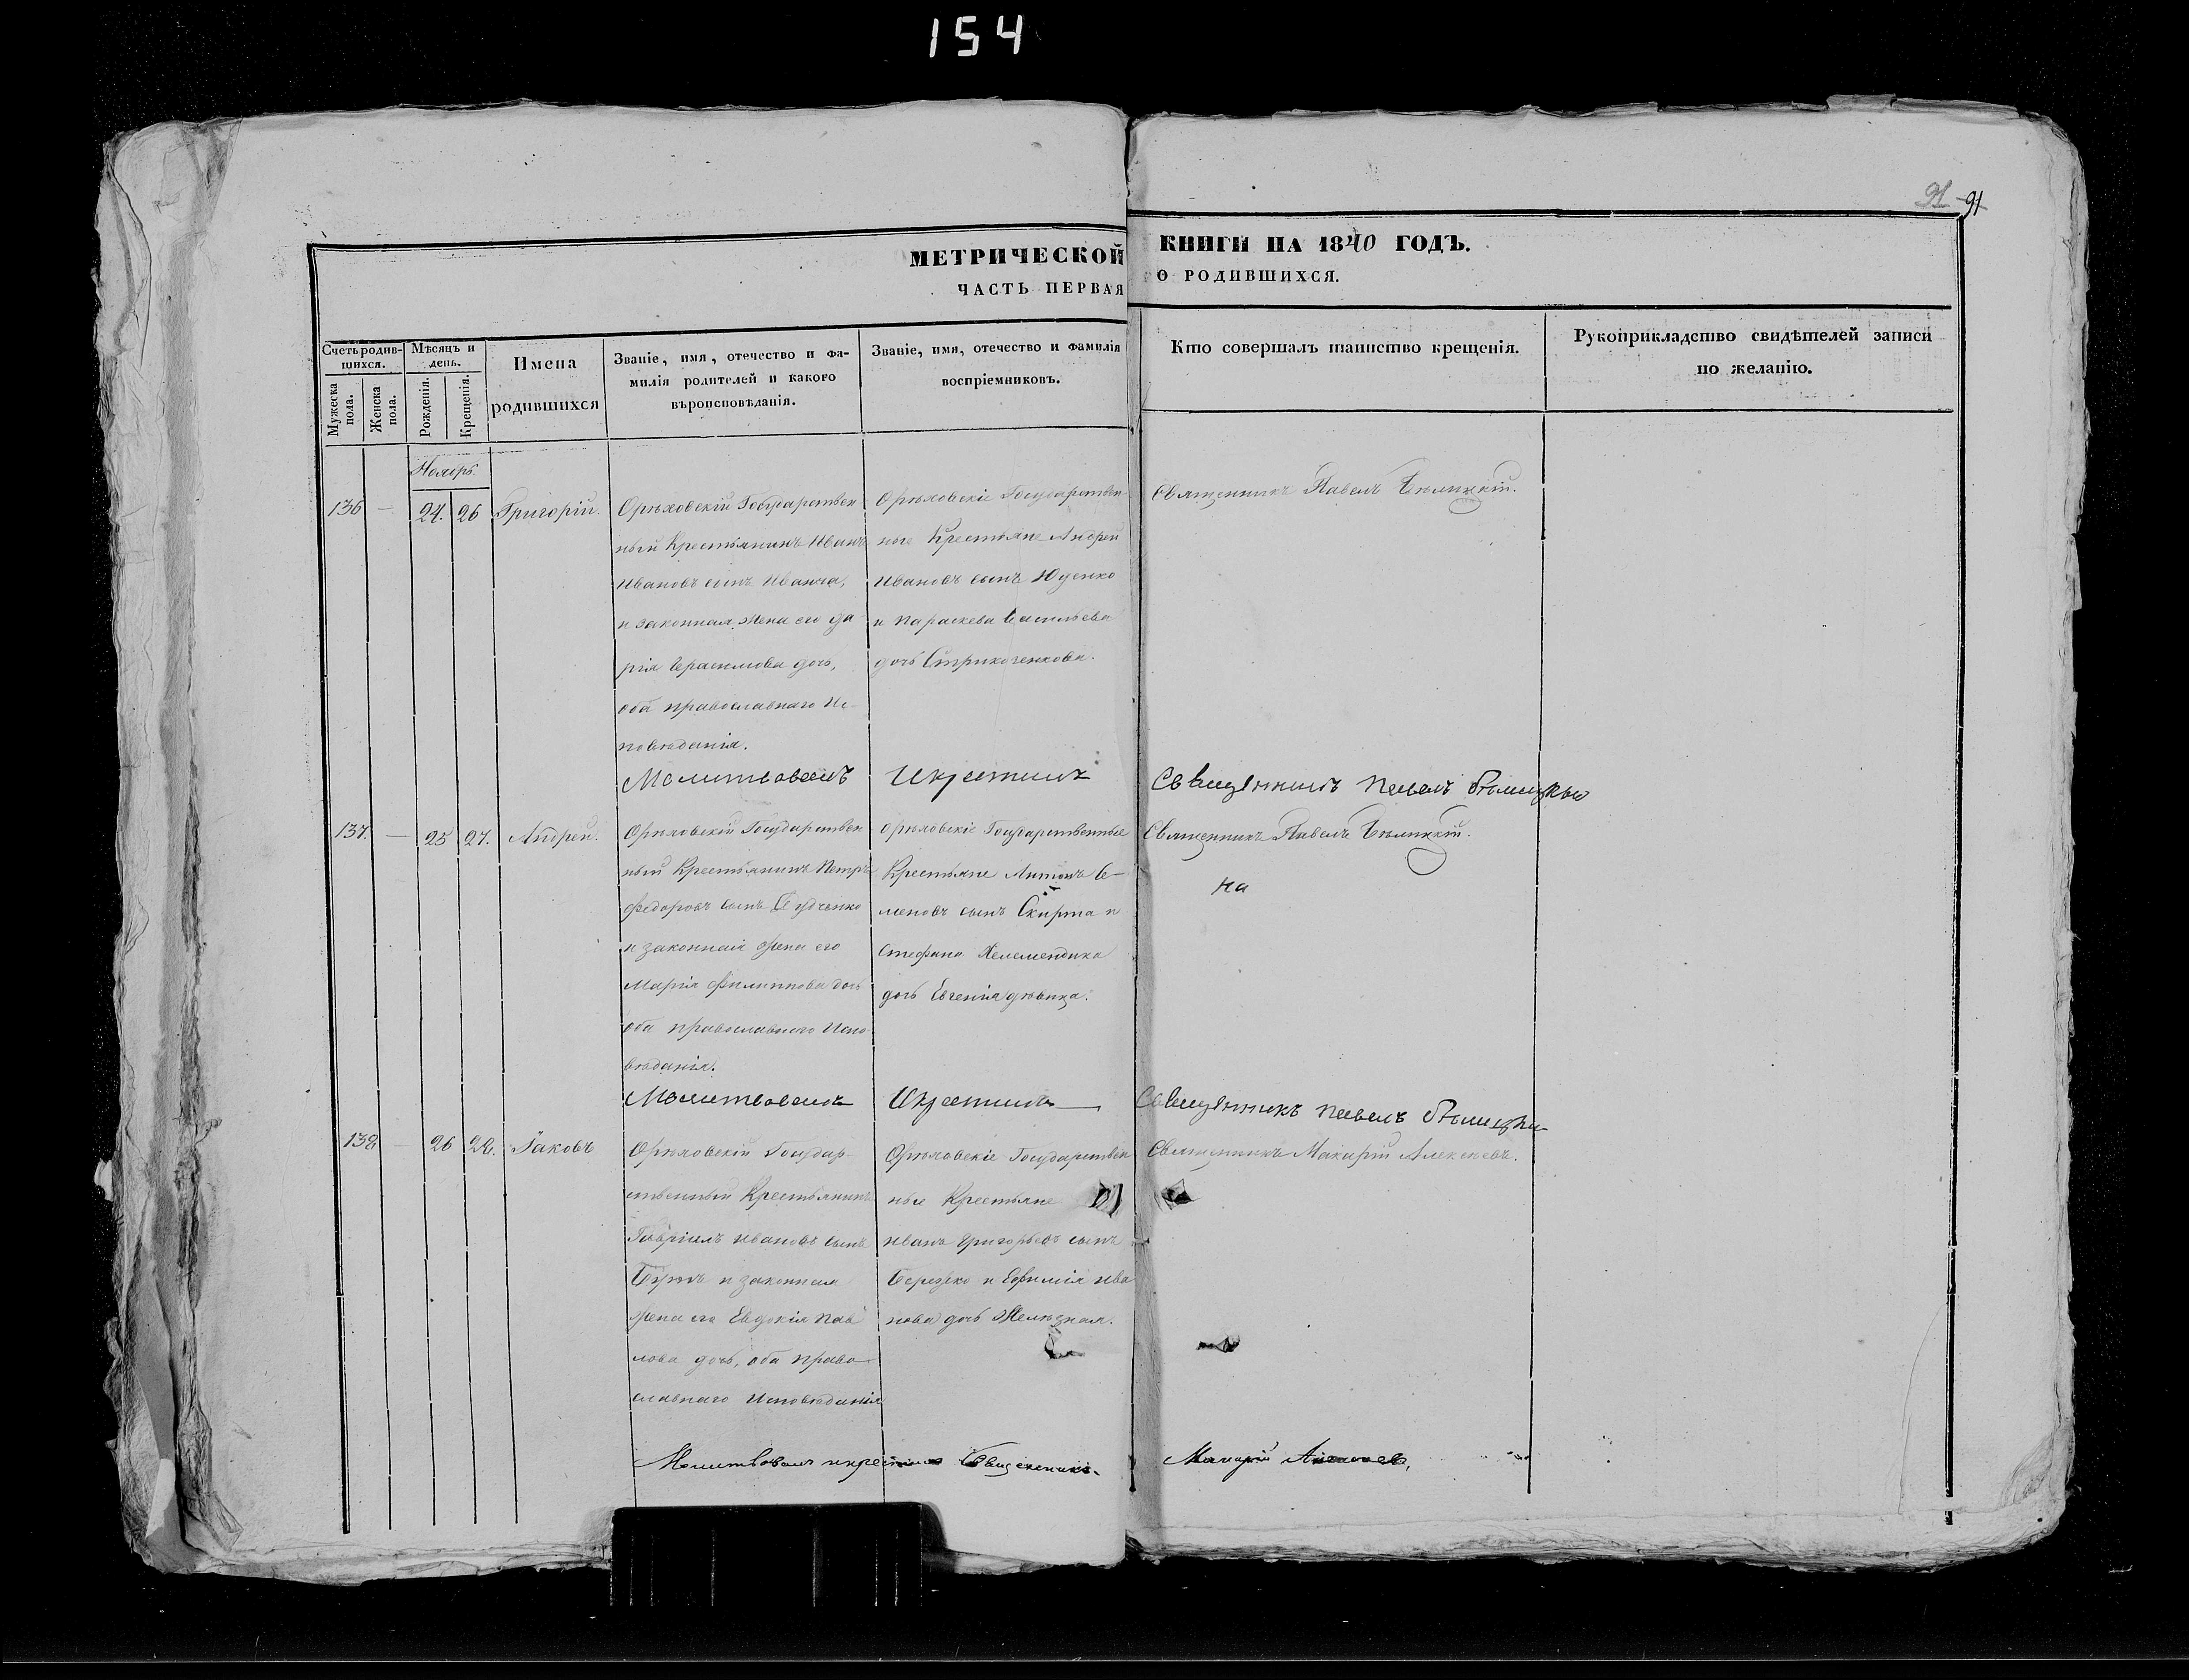 154
91 91
МЕТРИЧЕСКОЙ КНИГИ НА 1840 ГОДЪ.
ЧАСТЬ ПЕРВАЯ О РОДИВШИХСЯ.
Счетъ родившихся.
Мужеска пола.
Женска пола.
Мѣсяцъ и день.
Рожденія.
Крещенія.
Имена родившихся
Званіе, имя, отечество и фамилія родителей и какого вѣроисповѣданія.
Званіе, имя, отечество и фамилія воспріемниковъ.
Кто совершалъ таинство крещенія.
Рукоприкладство свидѣтелей записи по желанію.
Ноябрь.
136 — 24. 26 Григорій.
Орѣховскій Государствен
ный Крестьянинъ Иванъ
Ивановъ сынъ
и законная жена его Да
рія Герасимова дочь,
оба православнаго Ис-
повѣданія.
Орѣховскіе Государствен-
ные Крестьяне Андрей
Ивановъ сынъ Юценко
и Параскева Васильева
дочь Стрикоченкова.
Священникъ Павелъ Бѣлицкій.
Молитвовалъ И крестилъ Священникъ Павелъ Бѣлицкій
137. — 25 27. Андрей.
Орѣховскій Государствен
ный Крестьянинъ Петръ
Федоровъ сынъ
и законная жена его
Марія Филиппова дочь
оба православнаго Испо
вѣданія.
Орѣховскіе Государственные
Крестьяне Антонъ Се-
меновъ сынъ Скирта и
Стефана Келемендика
дочь Евгенія дѣвица.
Священникъ Павелъ Бѣлицкій.
на
Молитвовалъ И крестилъ Священникъ Павелъ Бѣлицкій
138 — 26 28. Іаковъ
Орѣховскій Государ-
ственный Крестьянинъ
Гавріилъ Ивановъ сынъ
Бутъ и законная
жена его Евдокія Пав
лова дочь, оба право-
славнаго Исповѣданія
Орѣховскіе Государствен
ные Крестьяне
Иванъ Григорьевъ сынъ
Бережко и Евфимія Ива
нова дочь Желѣзная.
Священникъ Макарій Алексѣевъ.
Молитвовалъ и крестилъ Священникъ Макарій Алексѣевъ.